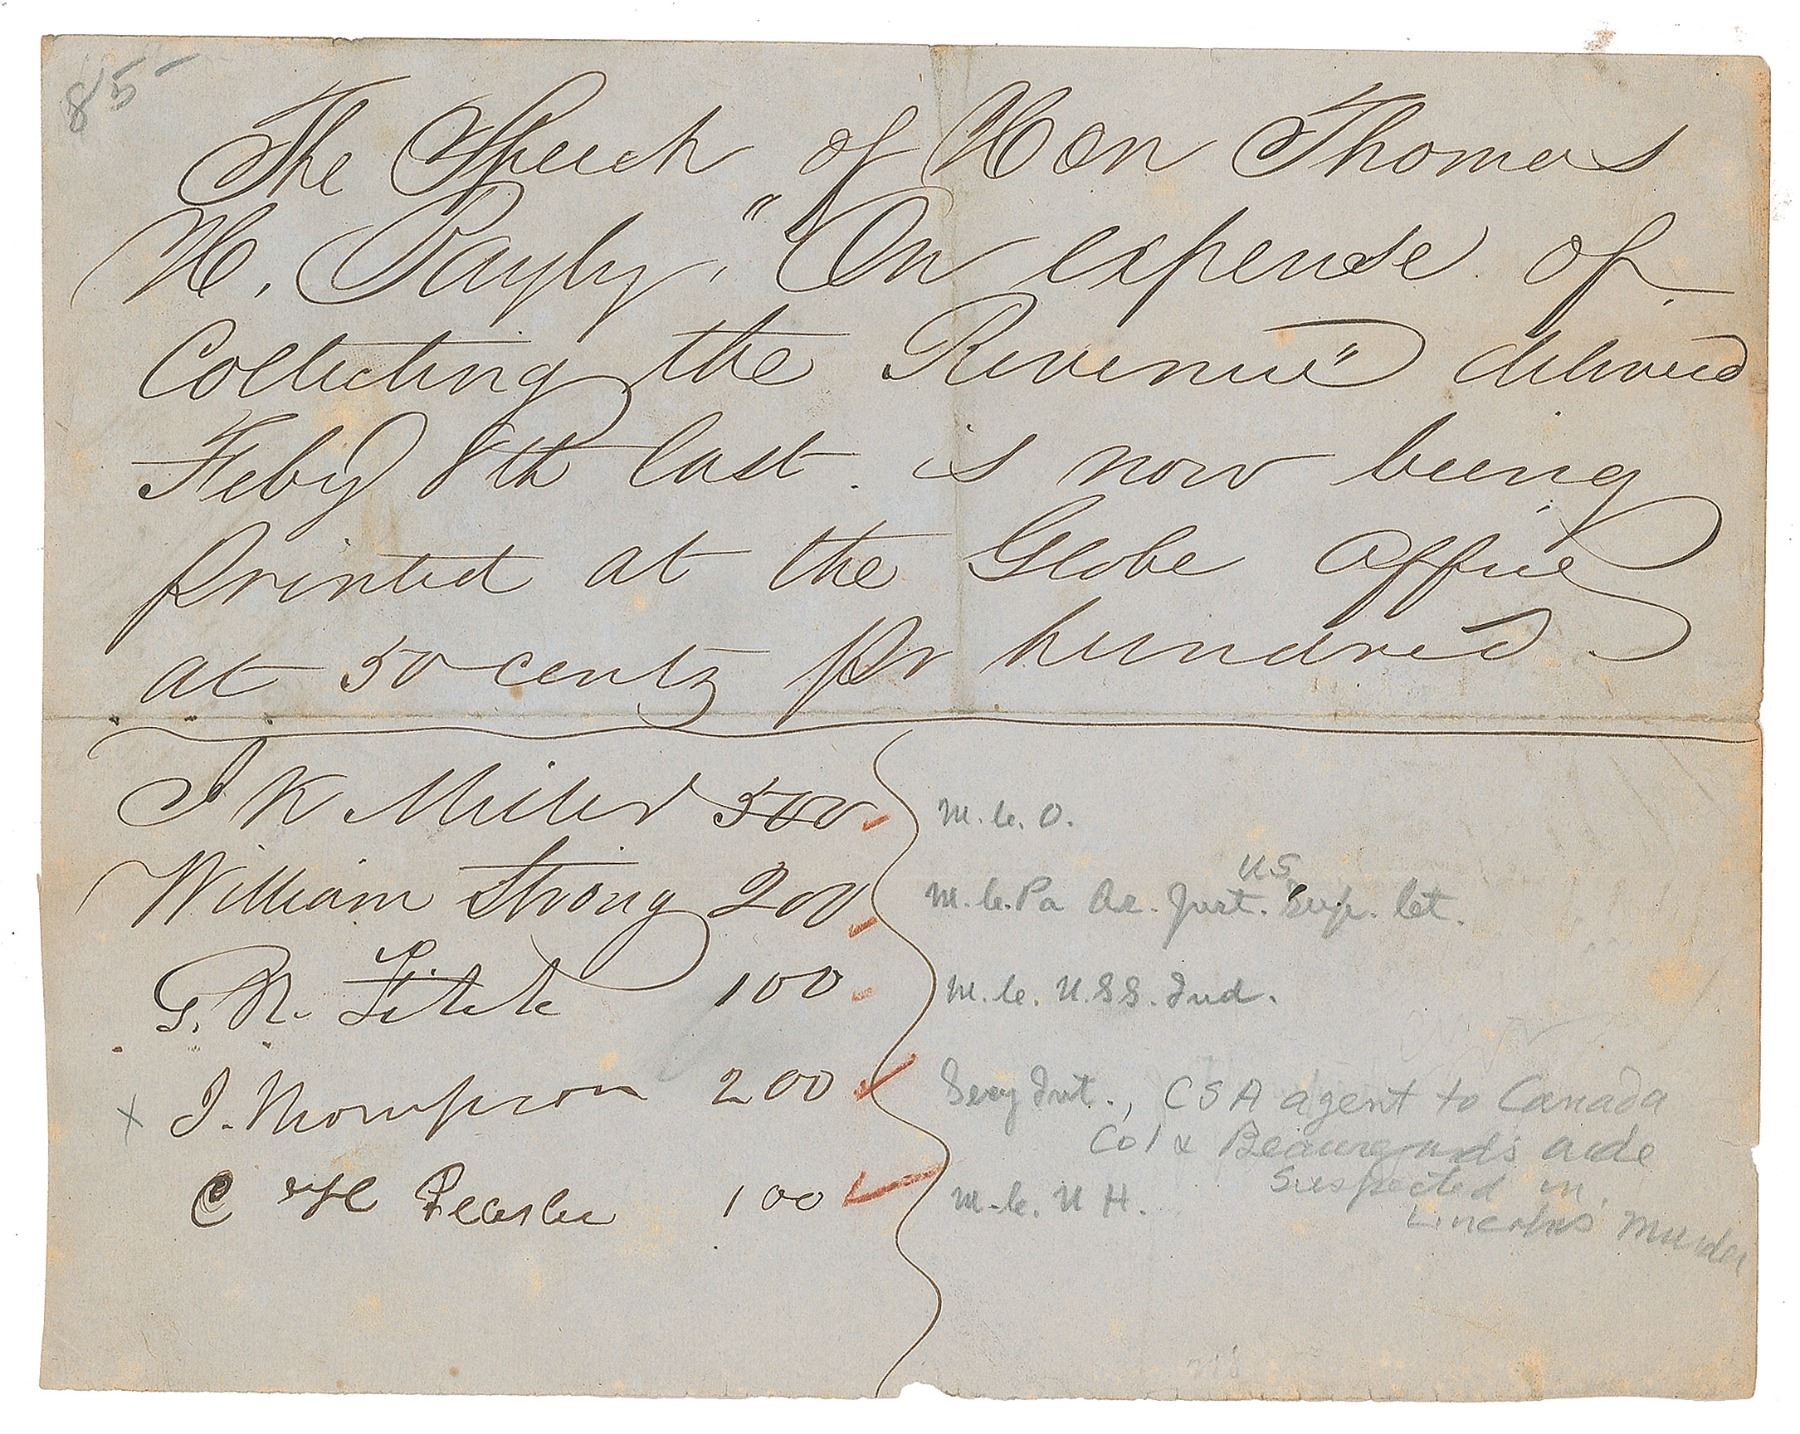 85-
The Speech of Hon Thomas
H. Bayly, "On expense of
Collecting the Revenue" delivered
Feby 8th last. is now being
printed at the Globe Office
at 50 cents pr hundred
J K Miller 500 M.C. O.
William Strong 200 M.C. Pa As. Just. US Sup. Ct.
G. N. Fitch 100 M.C. U.S.S. Ind.
x J. Thompson 200 Secy Int., CSA agent to Canada
Col & Beauregard's aide
Suspected in
Lincoln's Murder
C H Peaslee 100 M.C. N H.